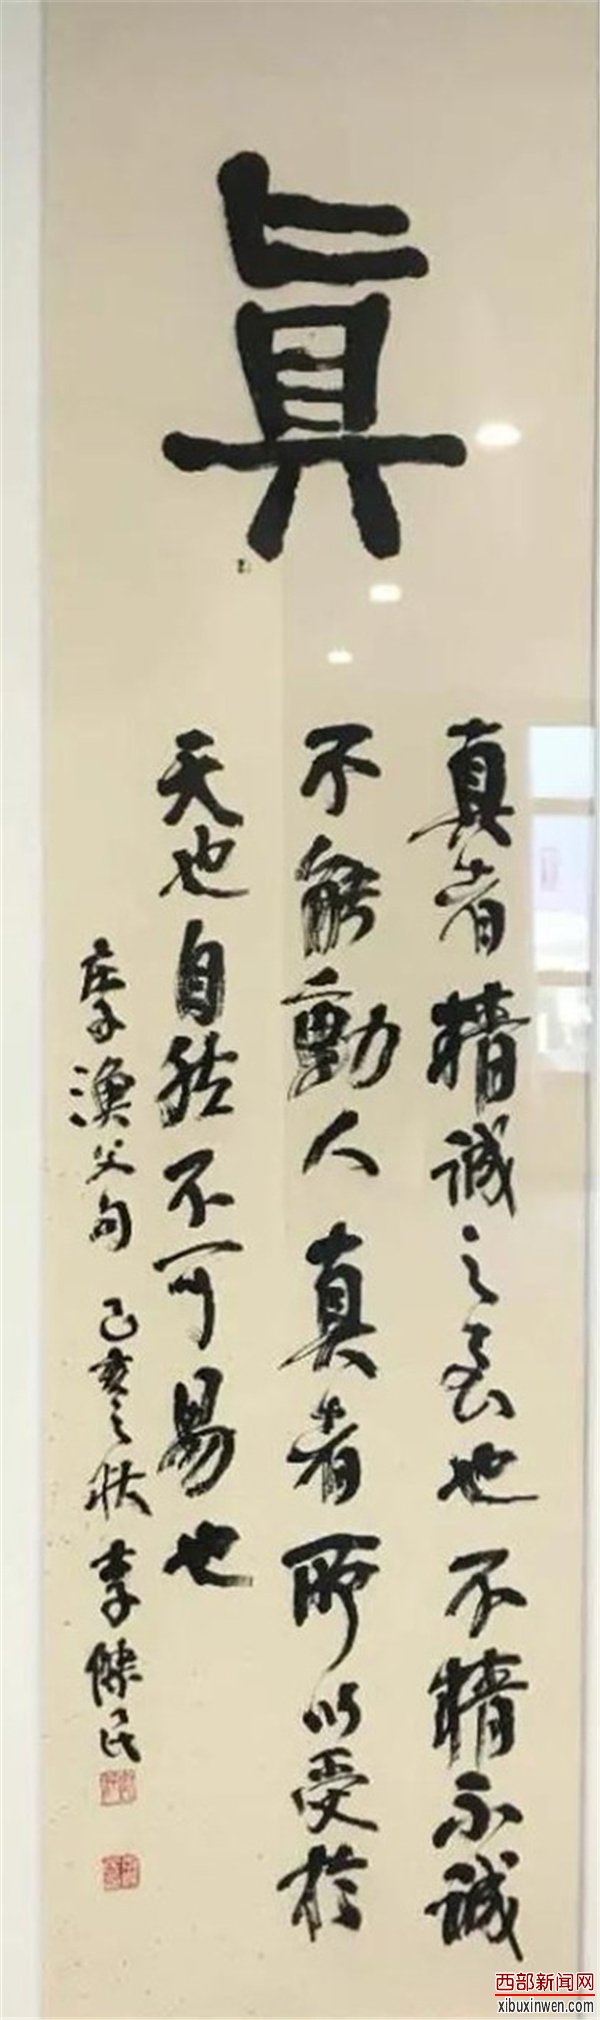 真
真者精诚之至也不精不诚
不能動人真者所以受於
天也自然不可易也
庄子漁父句 己亥之秋 李傑民
西部新闻网
xibuxinwen.com